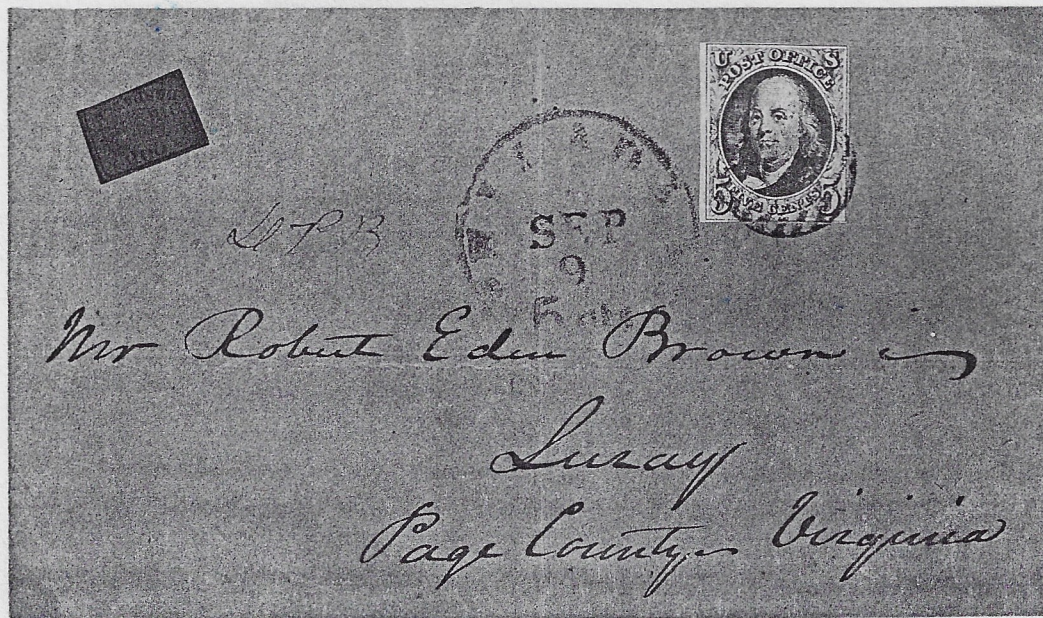 U S
POST OFFICE
5 FIVE CENTS 5
SEP
9
Mr Robert Eden Brown
Luray
Page County Virginia